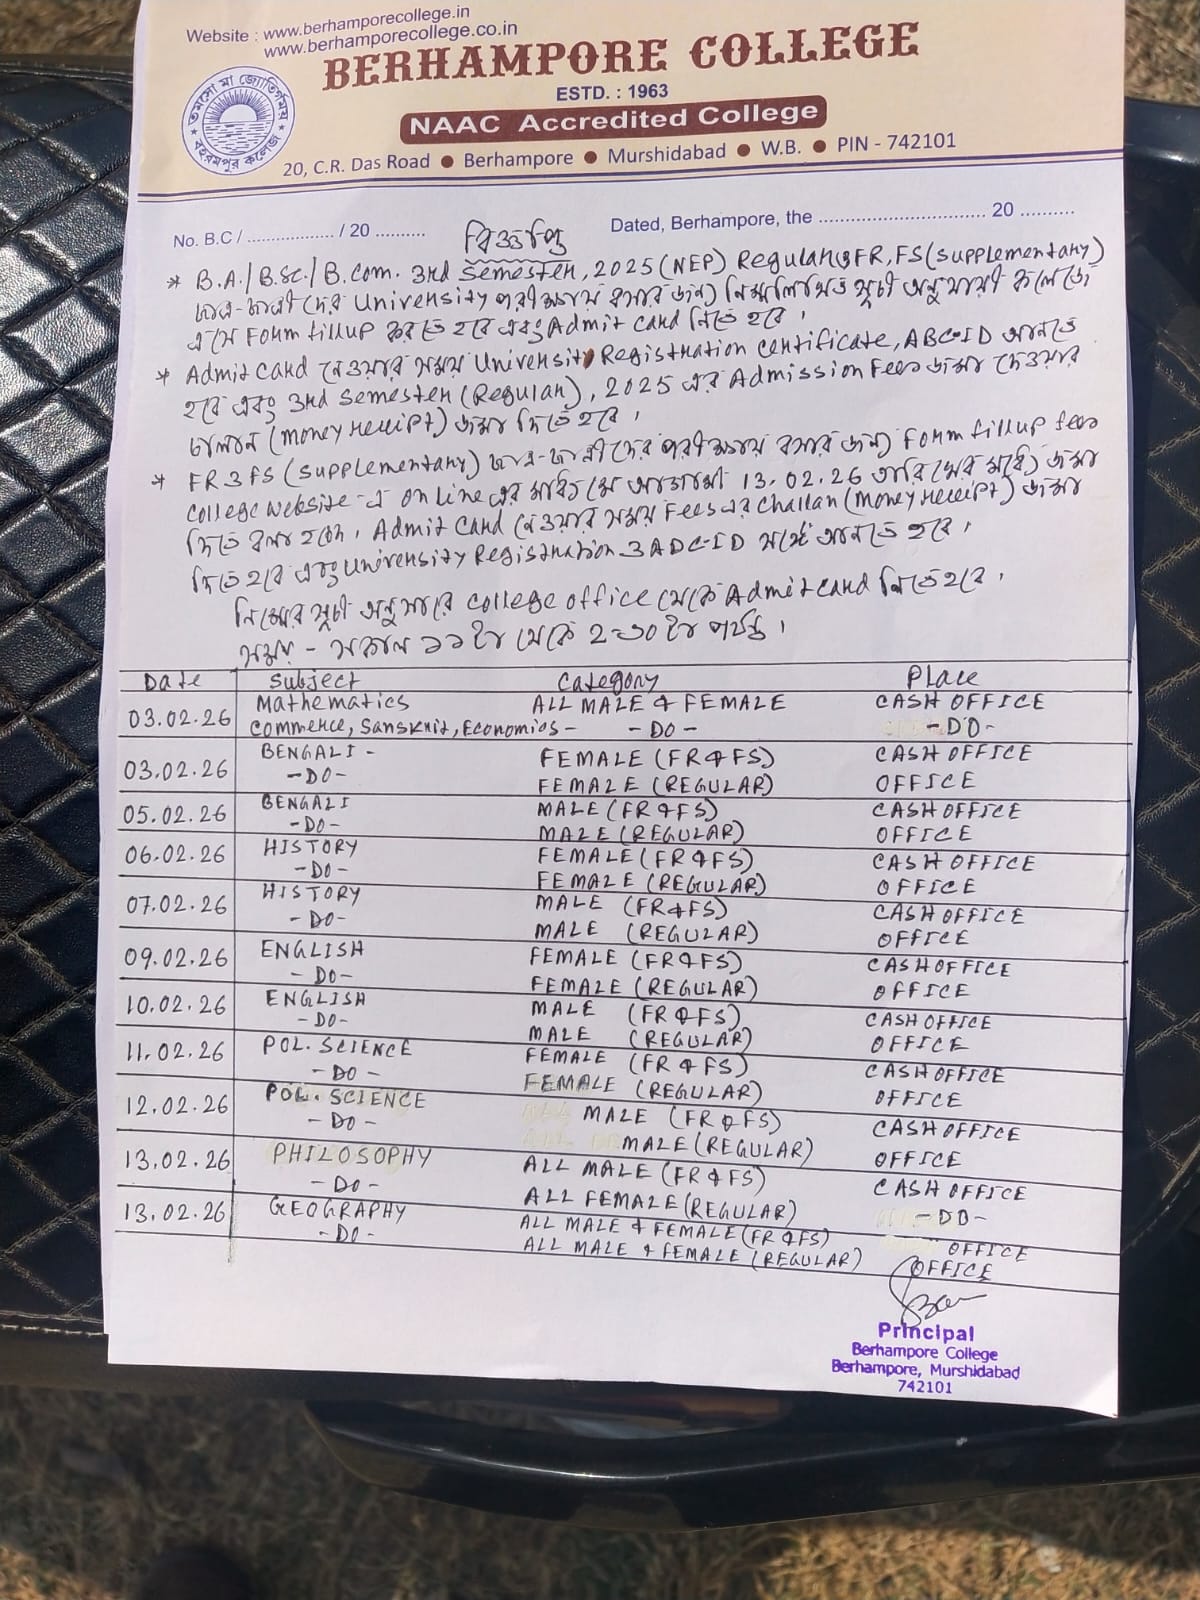 Website : www.berhamporecollege.in
www.berhamporecollege.co.in
BERHAMPORE COLLEGE
ESTD. : 1963
NAAC Accredited College
20, C.R. Das Road ● Berhampore ● Murshidabad ● W.B. ● PIN - 742101
তমসো মা জ্যোতির্গময়
বহরমপুর কলেজ
No. B.C / ................. / 20 ..........
Dated, Berhampore, the ................................ 20 ..........
বিজ্ঞপ্তি
* B.A./B.Sc./B.Com. 3rd Semester, 2025 (NEP) Regular ও FR, FS (supplementary)
ছাত্র-ছাত্রীদের University পরীক্ষায় বসার জন্য নিম্নলিখিত সূচী অনুযায়ী কলেজে
এসে Form fillup করতে হবে এবং Admit Card নিতে হবে।
* Admit Card নেওয়ার সময় University Registration Certificate, ABC-ID আনতে
হবে এবং 3rd Semester (Regular), 2025 এর Admission Fees জমা দেওয়ার
চালান (Money receipt) জমা দিতে হবে।
* FR ও FS (supplementary) ছাত্র-ছাত্রীদের পরীক্ষায় বসার জন্য Form fillup fees
College website-এ online এর মাধ্যমে আগামী 13.02.26 তারিখের মধ্যে জমা
দিতে বলা হচ্ছে। Admit Card নেওয়ার সময় Fees এর Challan (Money receipt) জমা
দিতে হবে এবং University Registration ও ADC-ID সঙ্গে আনতে হবে।
নিম্নের সূচী অনুসারে College office থেকে Admit Card নিতে হবে।
সময় - সকাল ১১ টা থেকে ২-৩০ টা পর্যন্ত।
Date Subject Category Place
03.02.26 Mathematics ALL MALE & FEMALE CASH OFFICE
Commerce, Sanskrit, Economics - - DO - - DO -
03.02.26 BENGALI - FEMALE (FR & FS) CASH OFFICE
- DO - FEMALE (REGULAR) OFFICE
05.02.26 BENGALI MALE (FR & FS) CASH OFFICE
- DO - MALE (REGULAR) OFFICE
06.02.26 HISTORY FEMALE (FR & FS) CASH OFFICE
- DO - FEMALE (REGULAR) OFFICE
07.02.26 HISTORY MALE (FR & FS) CASH OFFICE
- DO - MALE (REGULAR) OFFICE
09.02.26 ENGLISH FEMALE (FR & FS) CASH OFFICE
- DO - FEMALE (REGULAR) OFFICE
10.02.26 ENGLISH MALE (FR & FS) CASH OFFICE
- DO - MALE (REGULAR) OFFICE
11.02.26 POL. SCIENCE FEMALE (FR & FS) CASH OFFICE
- DO - FEMALE (REGULAR) OFFICE
12.02.26 POL. SCIENCE MALE (FR & FS) CASH OFFICE
- DO - MALE (REGULAR) OFFICE
13.02.26 PHILOSOPHY ALL MALE (FR & FS) CASH OFFICE
- DO - ALL FEMALE (REGULAR) - DO -
13.02.26 GEOGRAPHY ALL MALE & FEMALE (FR & FS) OFFICE
- DO - ALL MALE & FEMALE (REGULAR) OFFICE
Principal
Berhampore College
Berhampore, Murshidabad
742101